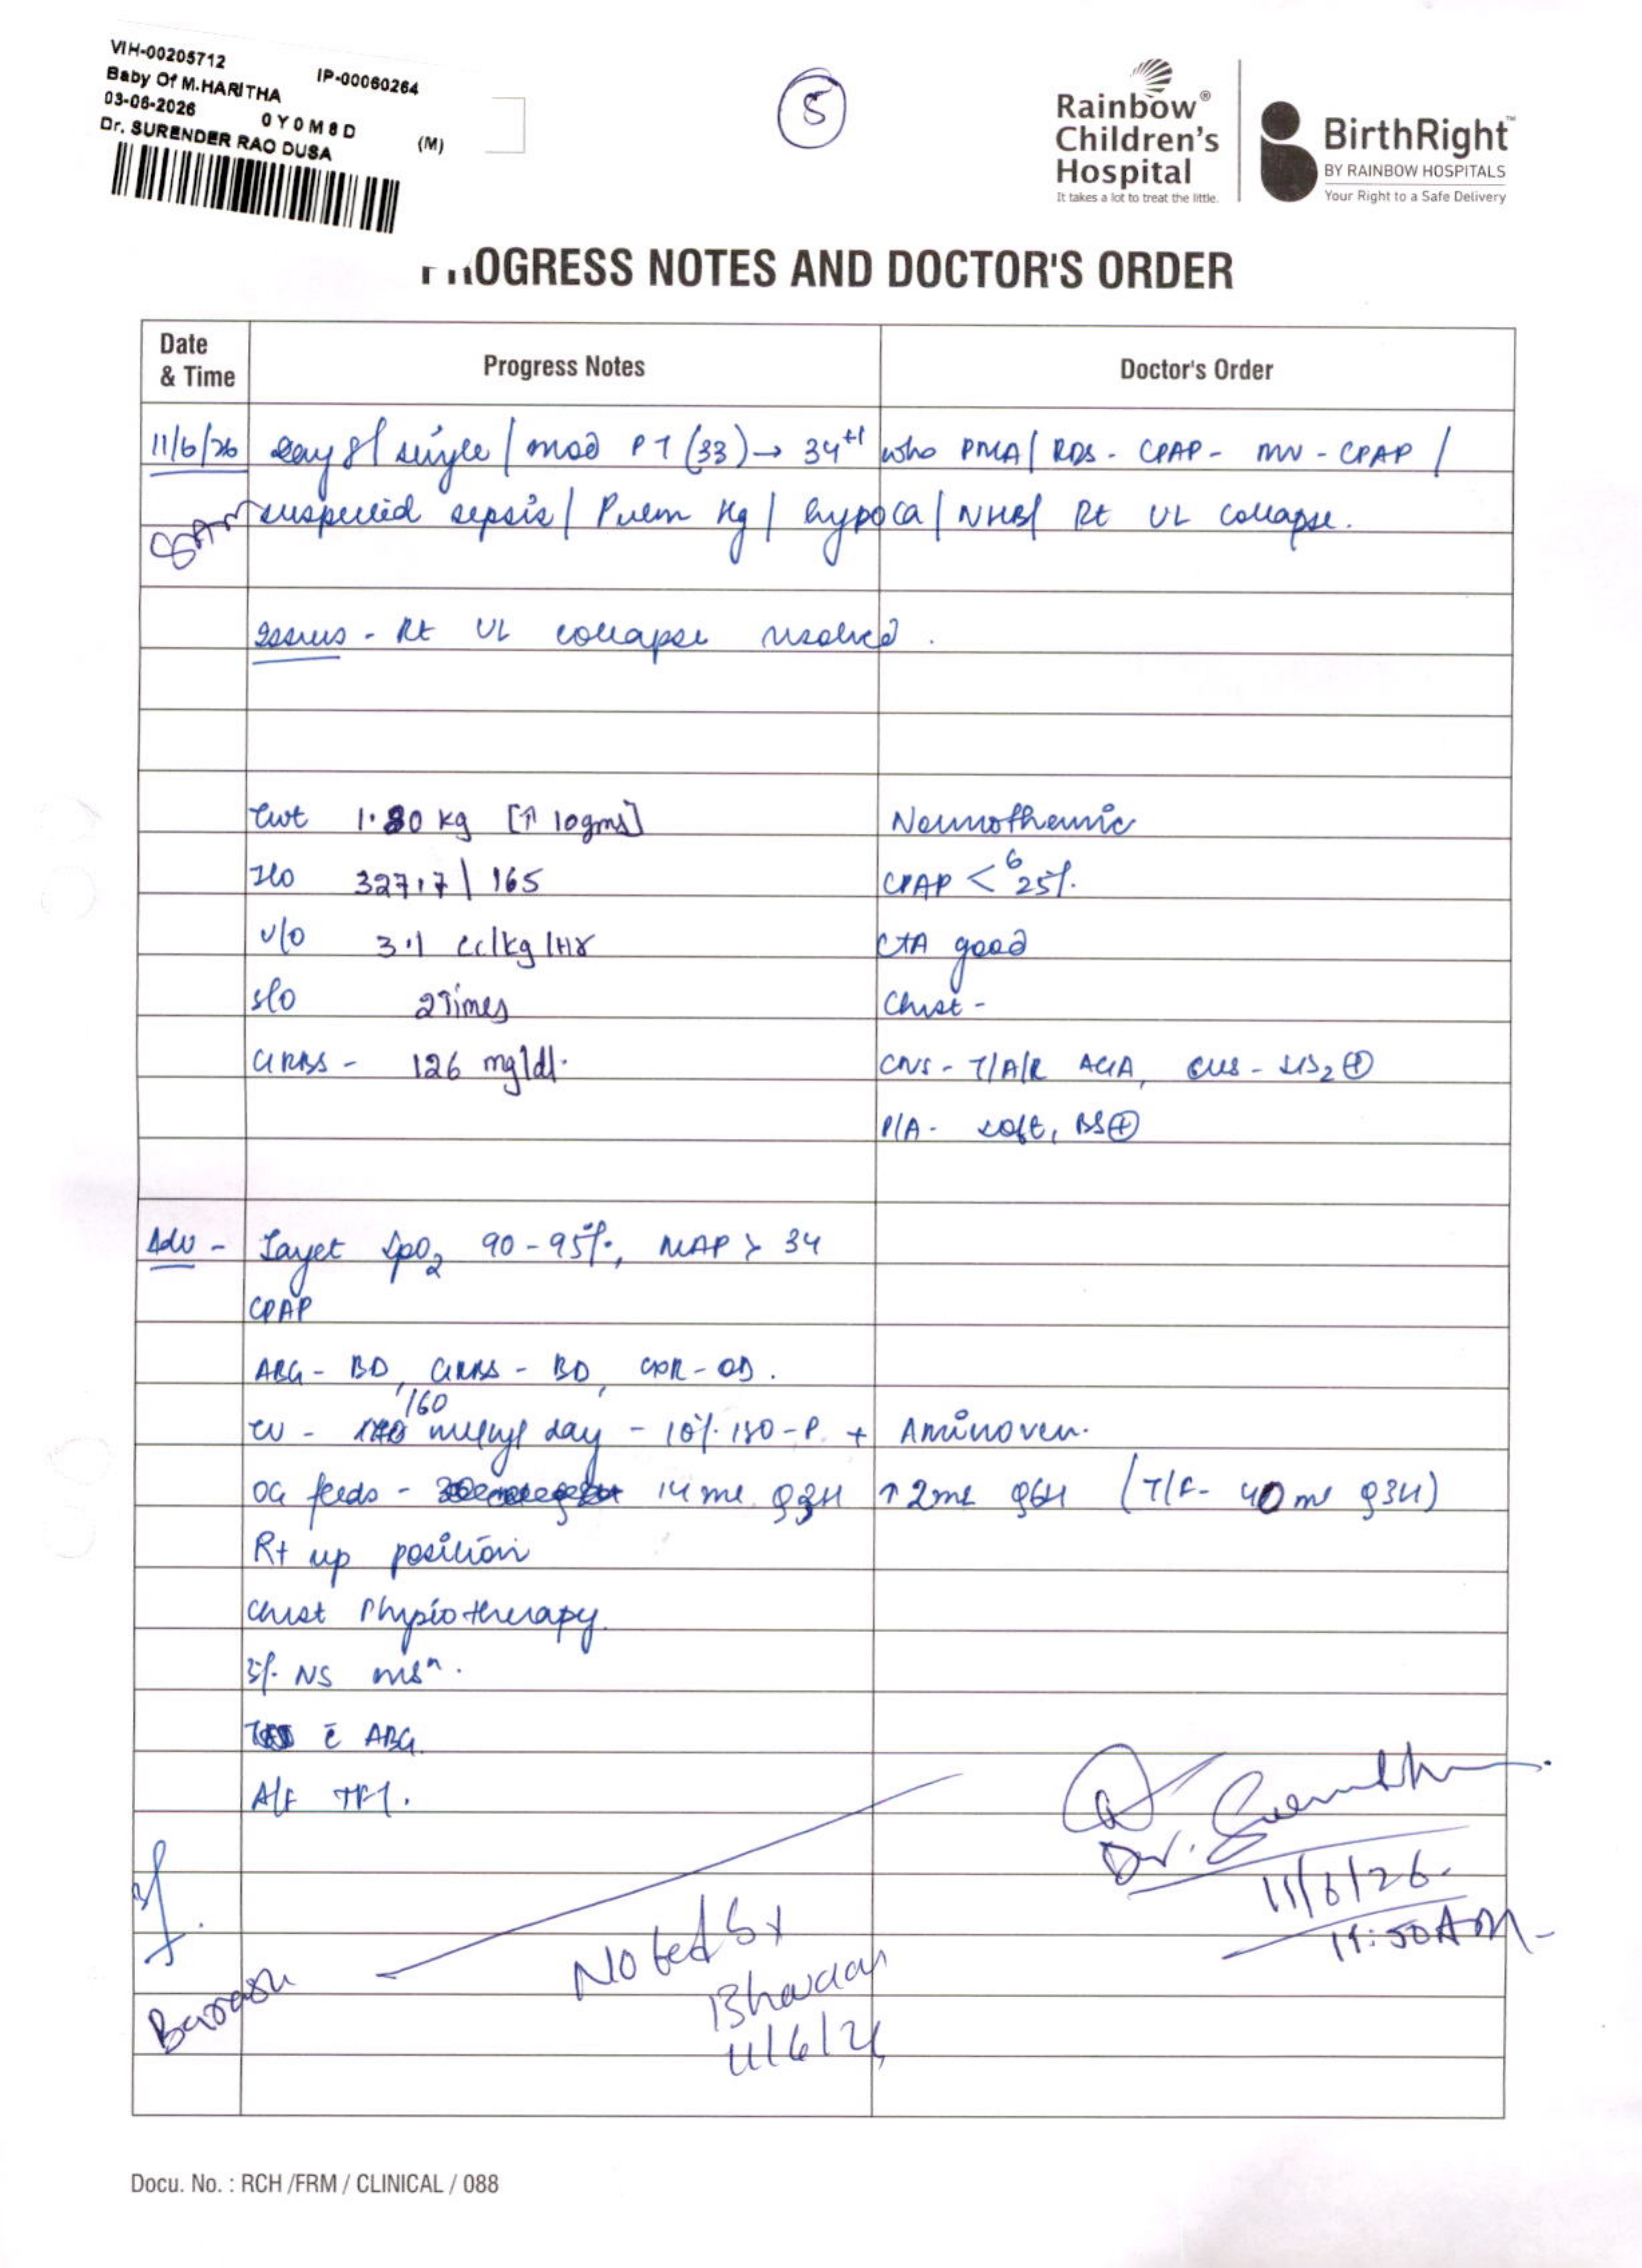 VIH-00205712 IP-00060264
Baby Of M.HARITHA
03-06-2026 0Y0M8D (M)
Dr. SURENDER RAO DUSA
5
Rainbow®
Children's
Hospital
It takes a lot to treat the little.
BirthRight™
BY RAINBOW HOSPITALS
Your Right to a Safe Delivery
OGRESS NOTES AND DOCTOR'S ORDER
Date & Time Progress Notes Doctor's Order
11/6/26 Day 8 / single / mod PT (33) → 34+1 wks PMA / RDS - CPAP - MV - CPAP /
8AM suspected sepsis / Pulm Hg / hypoca / NHB / Rt UL collapse.
Issues - Rt UL collapse resolved.
Cwt 1.80 kg [↑ 10gms] Normothermic
I/O 327.7 | 165 CPAP < 6 25%.
U/O 3.1 cc/kg/Hr CTA good
S/O 2 Times Chest -
GRBS - 126 mg/dl. CNS - T/A/R AGA, CVS - S1S2 ⊕
P/A - soft, BS⊕
Adv - Target SpO2 90-95%, MAP > 34
CPAP
ABG - BD, GRBS - BD, CXR - OD.
160
day - 10% ISO-P + Aminoven.
OG feeds - 14 ml q3H ↑ 2ml q6H (T/F - 40 ml q3H)
Rt up position
Chest Physiotherapy.
3% NS
c̄ ABG.
Dr.
11/6/26.
11:50AM
Noted by
11/6/26
Docu. No. : RCH /FRM / CLINICAL / 088